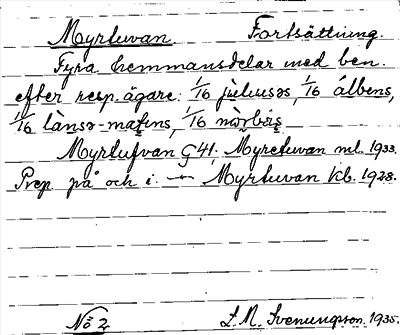 Myrtuvan. Fortsättning.
Fyra hemmansdelar med ben.
efter resp. ägare: 1/16 1/16 álbens,
1/16
Myrtufvan G 41; Myretuvan ml. 1933.
Prep på och i. — Myrtuvan kb. 1928.
No 2. L. M. Svenungsson. 1935.